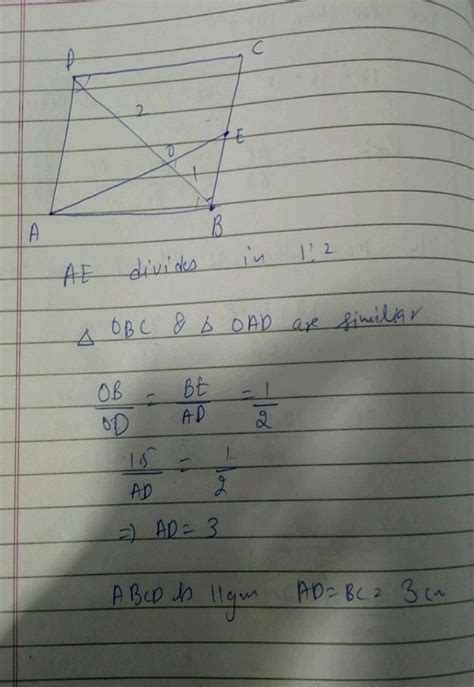 D C
2
E
O
1
A B
AE divides in 1:2
△ OBC & △ OAD are similiar
OB/OD = BE/AD = 1/2
1.5/AD = 1/2
=) AD = 3
ABCD is ||gm AD = BC = 3 cm